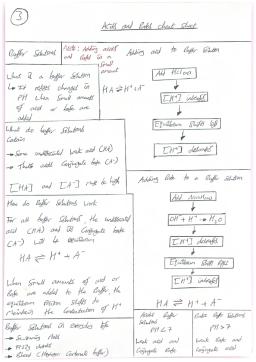 3
Acids and Bases cheat sheet
Buffer Solutions
Note: Adding acids
and base is a
small
amount
What is a buffer solution
→ It resists changes in
PH when small amounts
of acid or base are
added
HA ⇌ H+ + A-
What do buffer solutions
contain
→ Some undissociated weak acid (HA)
→ That's acid's Conjugate base (A-)
[HA] and [A-] must be high
How do Buffer Solutions work
For all buffer solutions, the undissociated
acid (HA) and its Conjugate base
(A-) will be in equilibrium
HA ⇌ H+ + A-
When small amounts of acid or
base are added to the buffer, the
equilibrium position shifts to
maintain the concentration of H+
Buffer Solution in everyday life
→ Swimming Pools
→ Food additives
→ Blood (Hydrogen Carbonate buffer)
Adding acid to Buffer Solution
Add HCl
[H+] increases
Equilibrium shifts left
[H+] decreases
Adding Base to a Buffer Solution
OH- + H+ → H2O
[H+] decreases
Equilibrium shifts right
[H+] increases
HA ⇌ H+ + A-
Acidic Buffer
Solutions
PH<7
Weak acid and
Conjugate Base
Basic Buffer Solutions
PH>7
Weak Base and
Conjugate acid